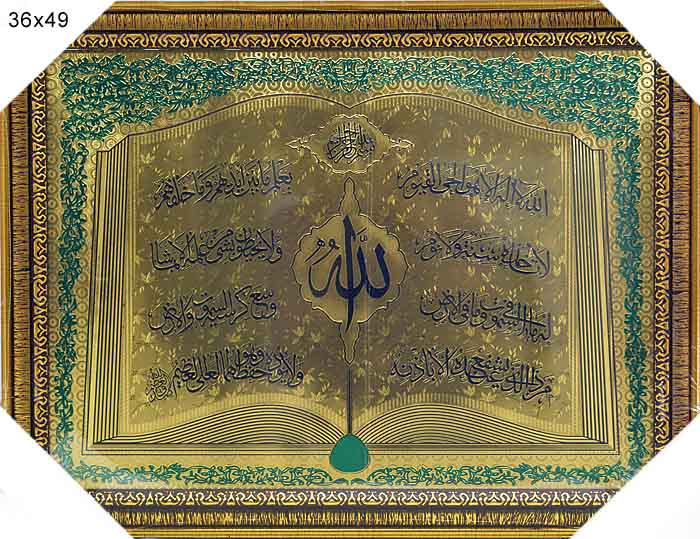 36x49
بسم الله الرحمن الرحيم
الله لا اله الا هو الحي القيوم
لا تاخذه سنة ولا نوم
له ما في السموات وما في الارض
من ذا الذي يشفع عنده الا باذنه
الله
يعلم ما بين ايديهم وما خلفهم
ولا يحيطون بشيء من علمه الا بما شاء
وسع كرسيه السموات والارض
ولا يؤده حفظهما وهو العلي العظيم